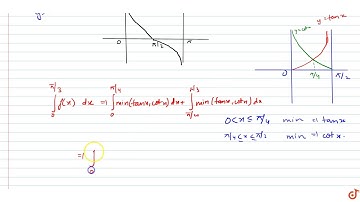 y=
0 π/2
y=cotx y=tanx
0 π/4 π/2
∫₀^(π/3) f(x) dx =) ∫₀^(π/4) min(tanx,cotx)dx + ∫_(π/4)^(π/3) min(tanx,cotx)dx
0<x≤π/4 min =) tanx
π/4≤x≤π/2 min =) cotx.
=) ∫₀